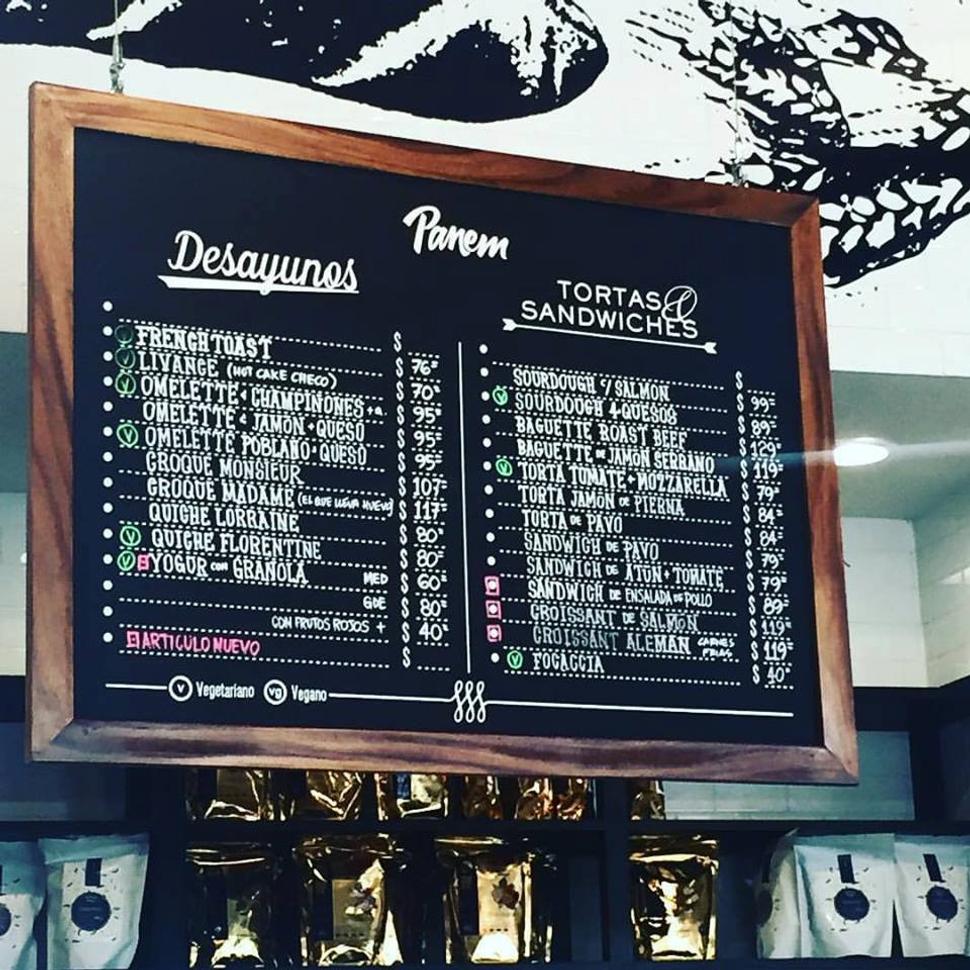 Panem
Desayunos
FRENCH TOAST $ 76
LIVANCE (HOT CAKE CHECO) $ 70
OMELETTE CHAMPIÑONES $ 95
OMELETTE JAMON + QUESO $ 95
OMELETTE POBLANO + QUESO $ 95
CROQUE MONSIEUR $ 107
CROQUE MADAME (EL QUE LLEVA HUEVO) $ 117
QUICHE LORRAINE $ 80
QUICHE FLORENTINE $ 80
YOGUR CON GRANOLA MED $ 60
GDE $ 80
CON FRUTOS ROJOS + $ 40
ARTICULO NUEVO $
V Vegetariano vg Vegano
TORTAS & SANDWICHES
SOURDOUGH C/ SALMON $ 99
V SOURDOUGH 4 QUESOS $ 89
BAGUETTE ROAST BEEF $ 129
BAGUETTE DE JAMON SERRANO $ 119
V TORTA TOMATE + MOZZARELLA $ 79
TORTA JAMON DE PIERNA $ 84
TORTA DE PAVO $ 84
SANDWICH DE PAVO $ 79
SANDWICH DE ATUN + TOMATE $ 79
SANDWICH DE ENSALADA DE POLLO $ 89
CROISSANT DE SALMON $ 119
CROISSANT ALEMAN CARNES FRIAS $ 119
V FOCACCIA $ 40